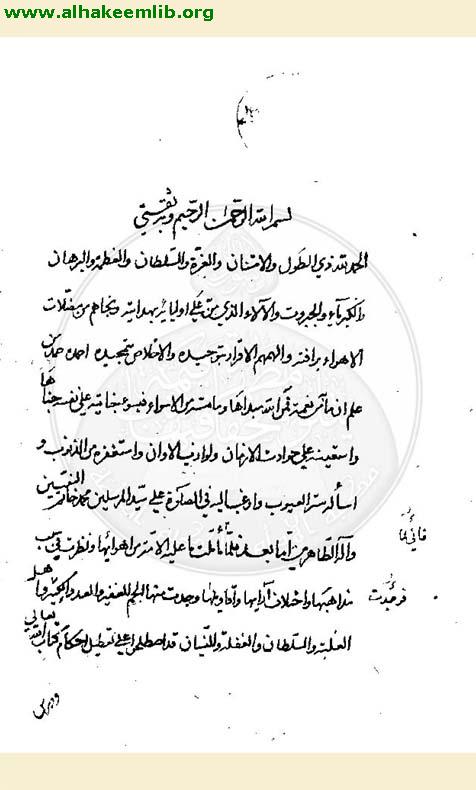 www.alhakeemlib.org
بسم الله الرحمن الرحيم وبه ثقتي
الحمد لله ذي الطول والامتنان والعزة والسلطان والعظمة والبرهان
والكبرياء والجبروت والآلاء والذي من على اوليائه بهدايته ونجاهم من مضلات
الاهواء برافته والهمهم الاقرار بتوحيده والاخلاص بتمجيده احمده حمد من
علم ان ما به من نعمة فمن الله مبداها وما مسه من الاسواء فبسوء جنايته على نفسه جناها
واستعينه على حوادث الازمان ولوازب الاوان واستغفره من الذنوب و
اساله ستر العيوب وارغب اليه في الصلوة على سيد المرسلين محمد خاتم النبيين
وآله الطاهرين اما بعد فلما تأملت ما عليه الامة من اهوائها ونظرت في سبب
مذاهبها واختلاف آرايها واقاويلها وجدت منها الجم الغفير والعدد الكثير واهل
الغلبة والسلطان والغفلة والنسيان قد اصطلحوا على تعطيل احكام كتاب الله تعالى
فاني لما
فوجدت
ودرس